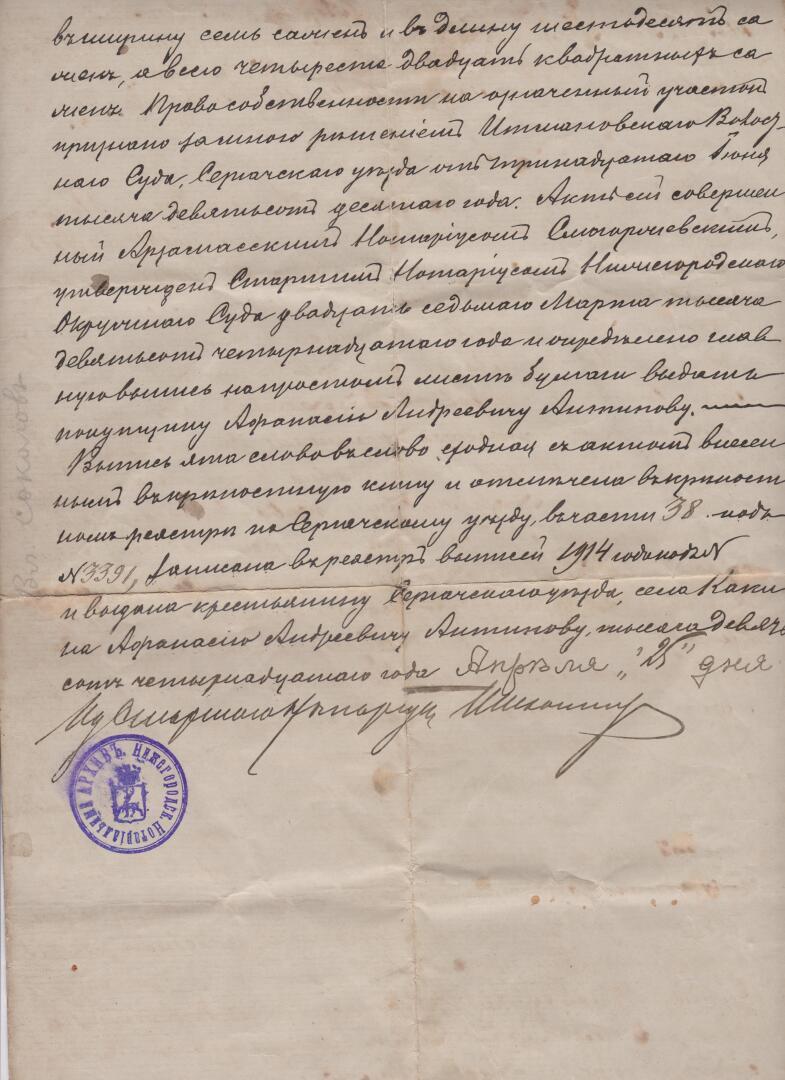 въ ширину семь саженъ и въ длину шестьдесятъ са
женъ, а всего четыреста двадцать квадратныхъ са
женъ. Право собственности на означенный участокъ
признано за мною рѣшеніемъ Итмановскаго Волост-
наго Суда, Сергачскаго уѣзда отъ тринадцатаго Іюня
тысяча девятьсотъ десятаго года. Актъ сей совершен
ный Арзамасскимъ Нотаріусомъ Смогоржевскимъ,
утвержденъ Старшимъ Нотаріусомъ Нижегородскаго
Окружнаго Суда двадцать седьмаго Марта тысяча
девятьсотъ четырнадцатаго года и опредѣлено глав
ную выпись на простомъ листѣ бумаги выдать
покупщику Афанасію Андреевичу Антипову.
Выпись эта слово въ слово сходная съ актомъ внесен
нымъ въ крѣпостную книгу и отмѣчена въ крѣпост
номъ реестрѣ по Сергачскому уѣзду, въ части 38 подъ
№ 3391, записана въ реестръ выписей 1914 года подъ №
и выдана крестьянину Сергачскаго уѣзда, села Каки
на Афанасію Андреевичу Антипову, тысяча девять
сотъ четырнадцатаго года Апрѣля "25" дня
Ид Старшаго Нотаріуса
НИЖЕГОРОДСК. НОТАРІАЛЬНЫЙ АРХИВЪ.
Вл. Соколовъ